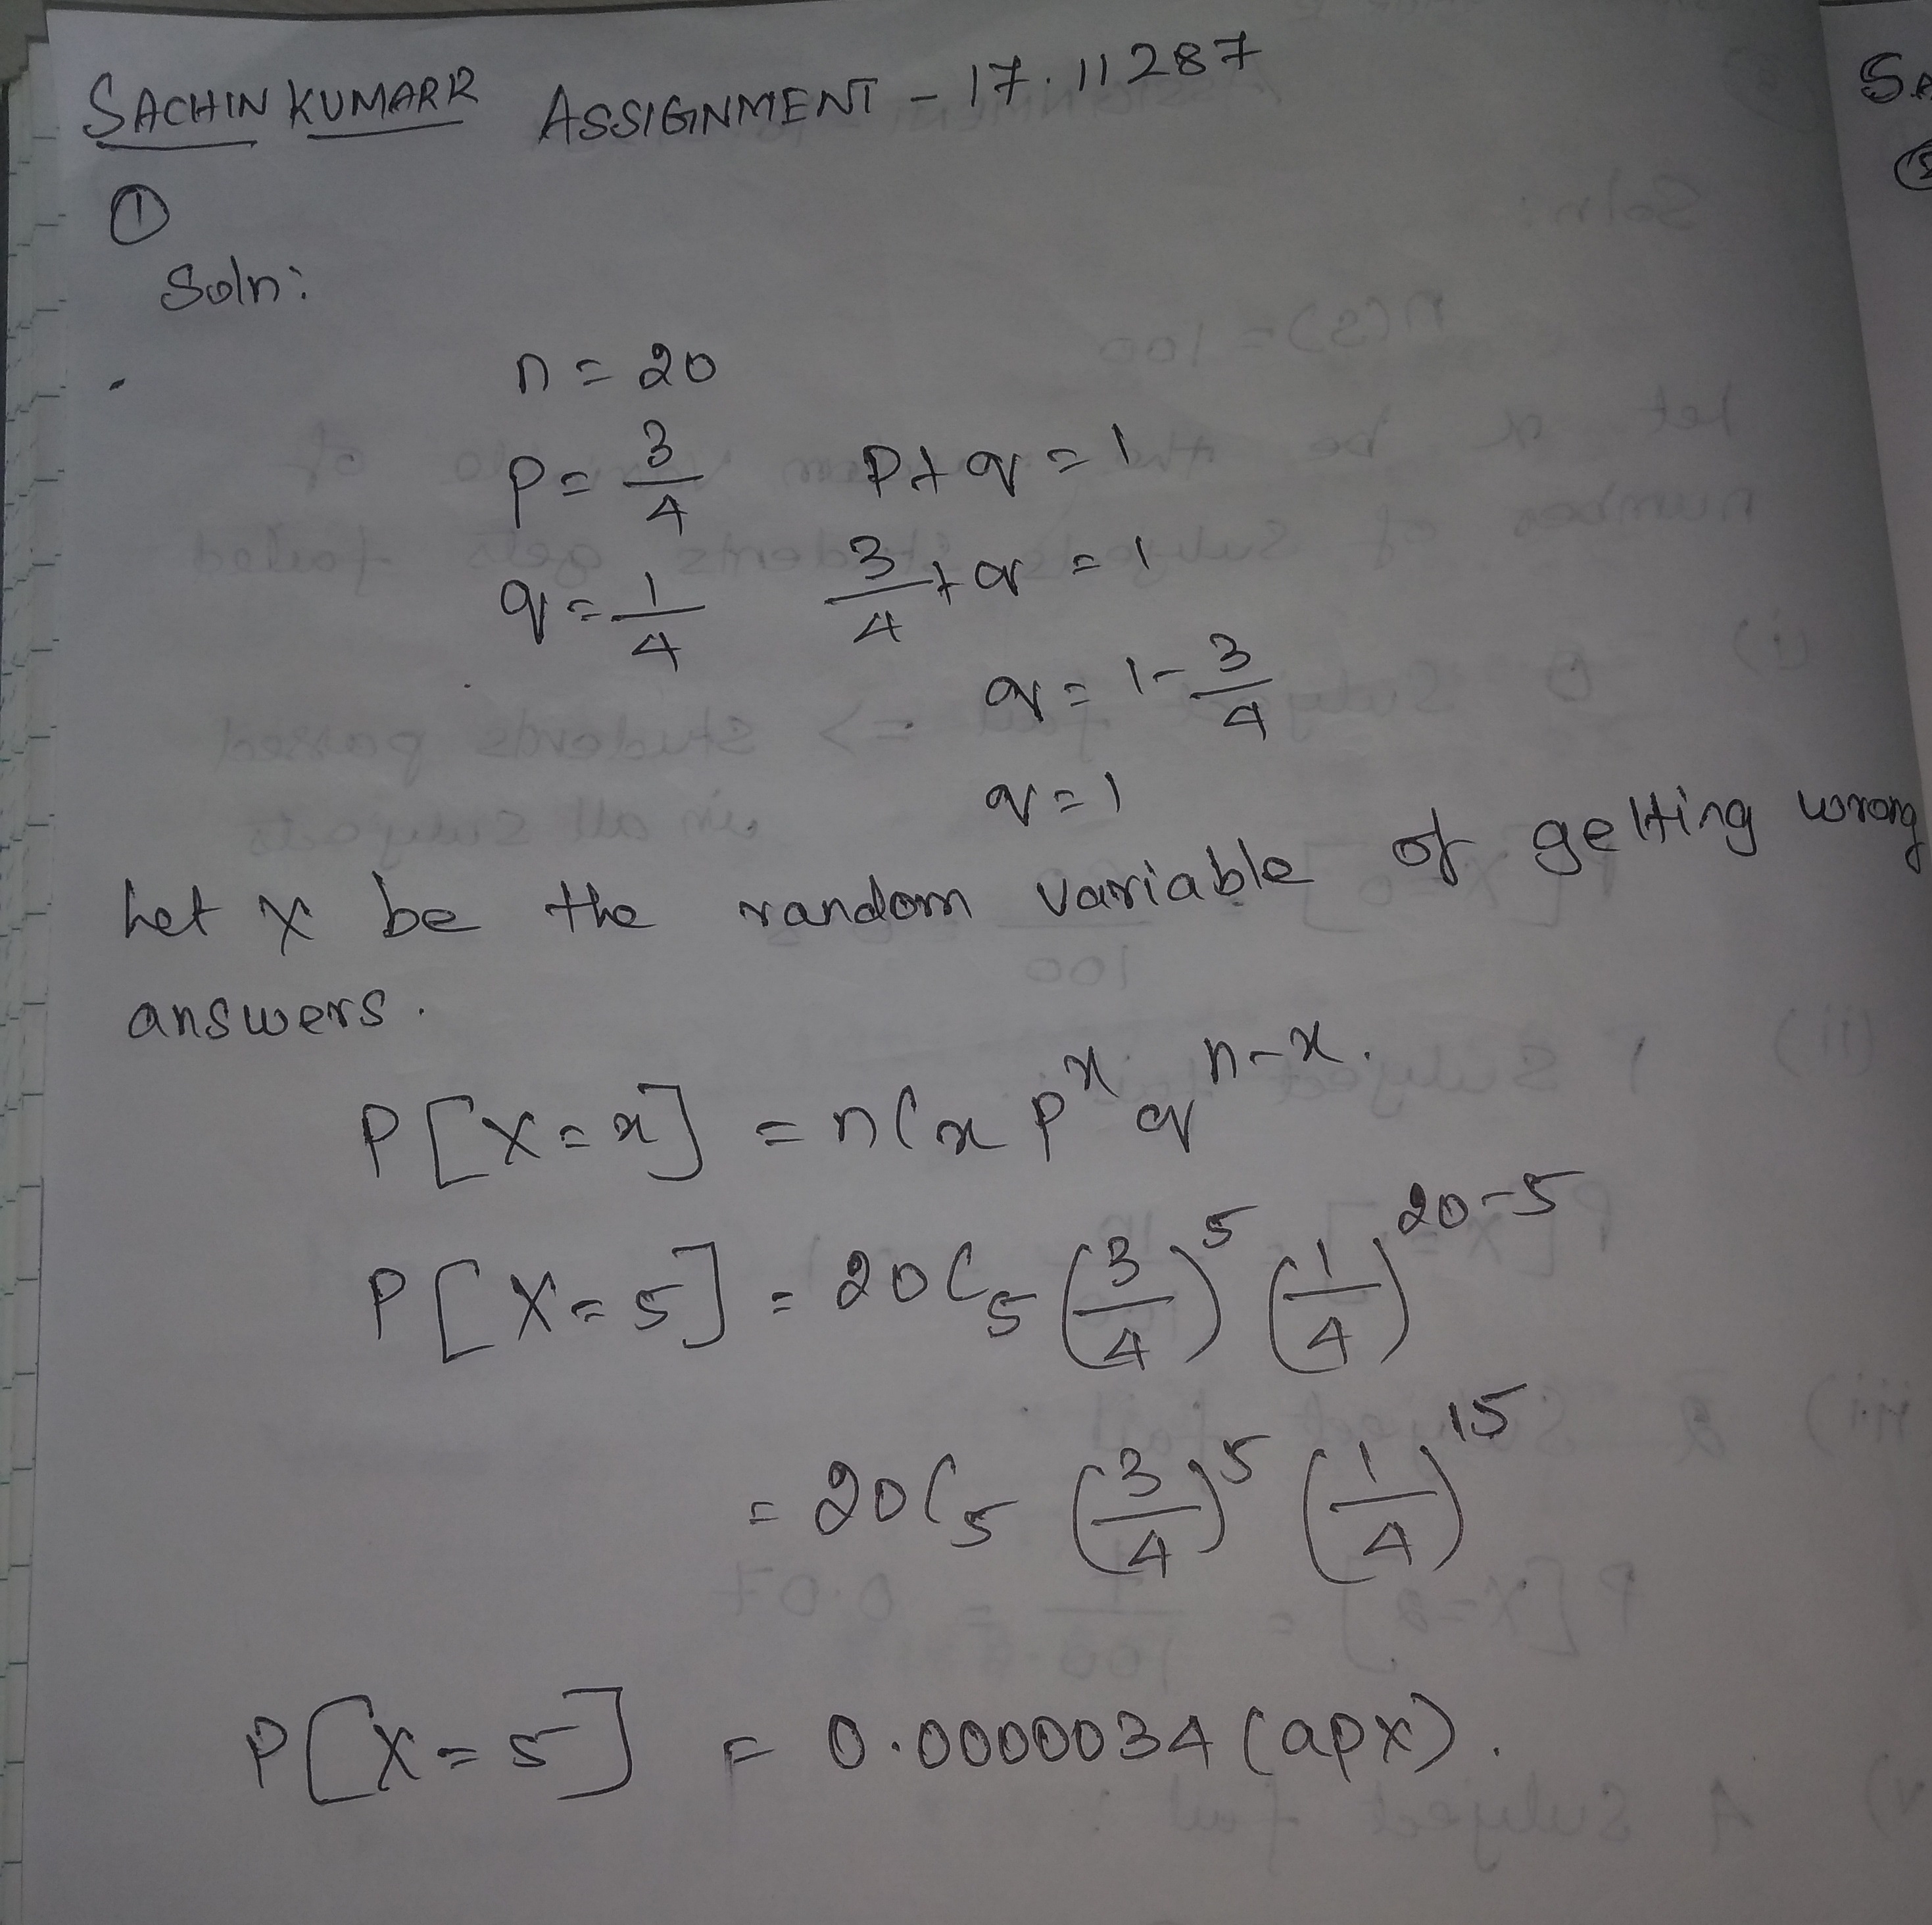 SACHIN KUMAR ASSIGNMENT - 17.11 287
①
Soln:
n = 20
p = 3/4 p+q = 1
q = 1/4 3/4 + q = 1
q = 1 - 3/4
q = 1
Let X be the random variable of getting wrong
answers.
P[X = x] = nCx p^x q^n-x.
P[X = 5] = 20C5 (3/4)^5 (1/4)^20-5
= 20C5 (3/4)^5 (1/4)^15
P[X = 5] = 0.00000034 (apx).